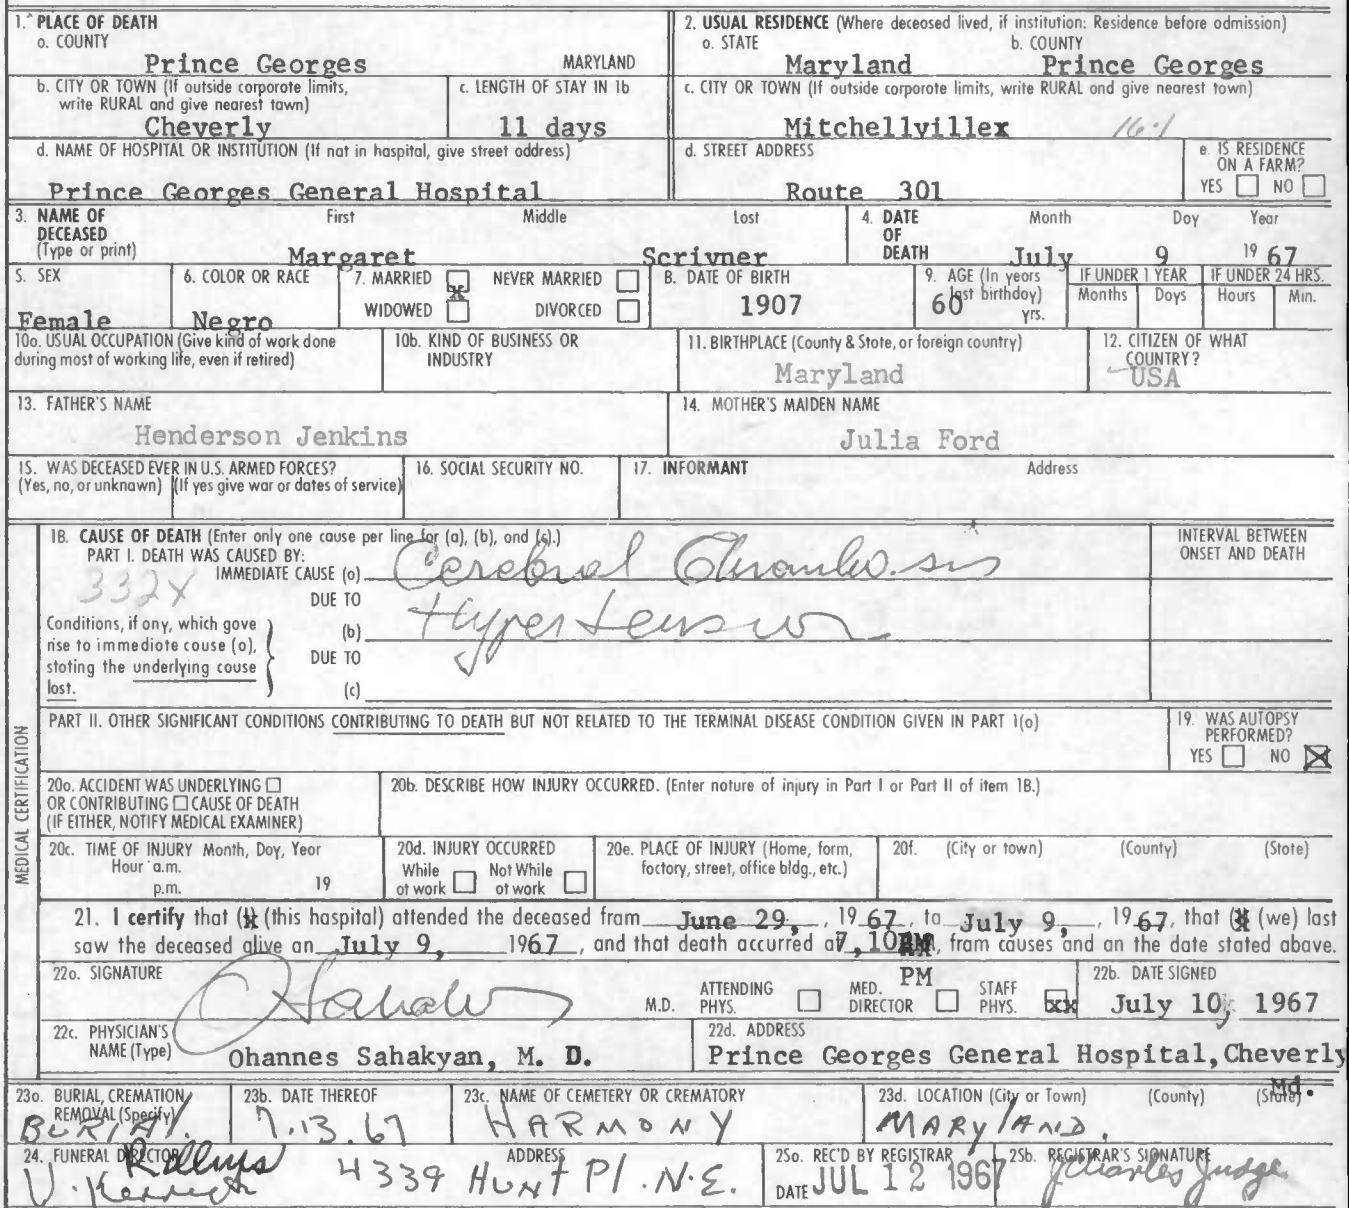 1. PLACE OF DEATH
a. COUNTY
Prince Georges MARYLAND
2. USUAL RESIDENCE (Where deceased lived, if institution: Residence before admission)
a. STATE b. COUNTY
Maryland Prince Georges
b. CITY OR TOWN (If outside corporate limits, write RURAL and give nearest town)
Cheverly
c. LENGTH OF STAY IN 1b
11 days
c. CITY OR TOWN (If outside corporate limits, write RURAL and give nearest town)
Mitchellvillex 16-1
d. NAME OF HOSPITAL OR INSTITUTION (If not in hospital, give street address)
Prince Georges General Hospital
d. STREET ADDRESS
Route 301
e. IS RESIDENCE ON A FARM?
YES NO
3. NAME OF DECEASED (Type or print)
First Middle Last
Margaret Scrivner
4. DATE OF DEATH
Month Day Year
July 9 19 67
5. SEX
Female
6. COLOR OR RACE
Negro
7. MARRIED x NEVER MARRIED
WIDOWED DIVORCED
8. DATE OF BIRTH
1907
9. AGE (In years last birthday)
60 yrs.
IF UNDER 1 YEAR
Months Days
IF UNDER 24 HRS.
Hours Min.
10a. USUAL OCCUPATION (Give kind of work done during most of working life, even if retired)
10b. KIND OF BUSINESS OR INDUSTRY
11. BIRTHPLACE (County & State, or foreign country)
Maryland
12. CITIZEN OF WHAT COUNTRY?
USA
13. FATHER'S NAME
Henderson Jenkins
14. MOTHER'S MAIDEN NAME
Julia Ford
15. WAS DECEASED EVER IN U.S. ARMED FORCES?
(Yes, no, or unknown) (If yes give war or dates of service)
16. SOCIAL SECURITY NO.
17. INFORMANT Address
MEDICAL CERTIFICATION
18. CAUSE OF DEATH (Enter only one cause per line for (a), (b), and (c).)
PART I. DEATH WAS CAUSED BY:
IMMEDIATE CAUSE (a) Cerebral Thrombosis
332X
DUE TO
(b) Hypertension
Conditions, if any, which gave rise to immediate cause (a), stating the underlying cause last.
DUE TO
(c)
INTERVAL BETWEEN ONSET AND DEATH
PART II. OTHER SIGNIFICANT CONDITIONS CONTRIBUTING TO DEATH BUT NOT RELATED TO THE TERMINAL DISEASE CONDITION GIVEN IN PART I(a)
19. WAS AUTOPSY PERFORMED?
YES NO X
20a. ACCIDENT WAS UNDERLYING
OR CONTRIBUTING CAUSE OF DEATH
(IF EITHER, NOTIFY MEDICAL EXAMINER)
20b. DESCRIBE HOW INJURY OCCURRED. (Enter nature of injury in Part I or Part II of item 18.)
20c. TIME OF INJURY Month, Day, Year
Hour a.m.
p.m. 19
20d. INJURY OCCURRED
While at work Not While at work
20e. PLACE OF INJURY (Home, farm, factory, street, office bldg., etc.)
20f. (City or town) (County) (State)
21. I certify that (I) (this hospital) attended the deceased from June 29, 1967, to July 9, 1967, that (I) (we) last
saw the deceased alive on July 9, 1967, and that death occurred at 7,10 AM, from causes and on the date stated above.
PM
22a. SIGNATURE
M.D. ATTENDING PHYS. MED. DIRECTOR STAFF PHYS. xx
22b. DATE SIGNED
July 10, 1967
22c. PHYSICIAN'S NAME (Type)
Ohannes Sahakyan, M. D.
22d. ADDRESS
Prince Georges General Hospital, Cheverly
Md.
23a. BURIAL, CREMATION REMOVAL (Specify)
BURIAL
23b. DATE THEREOF
7.13.67
23c. NAME OF CEMETERY OR CREMATORY
HARMONY
23d. LOCATION (City or Town) (County) (State)
MARYLAND.
24. FUNERAL DIRECTOR ADDRESS
Rollins
4339 HUNT Pl. N.E.
25a. REC'D BY REGISTRAR
DATE JUL 12 1967
25b. REGISTRAR'S SIGNATURE
Charles Judge